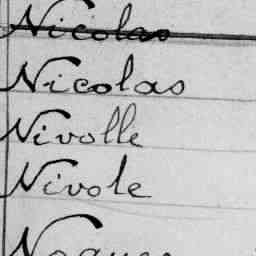 Nicolas
Nicolas
Nivolle
Nivole